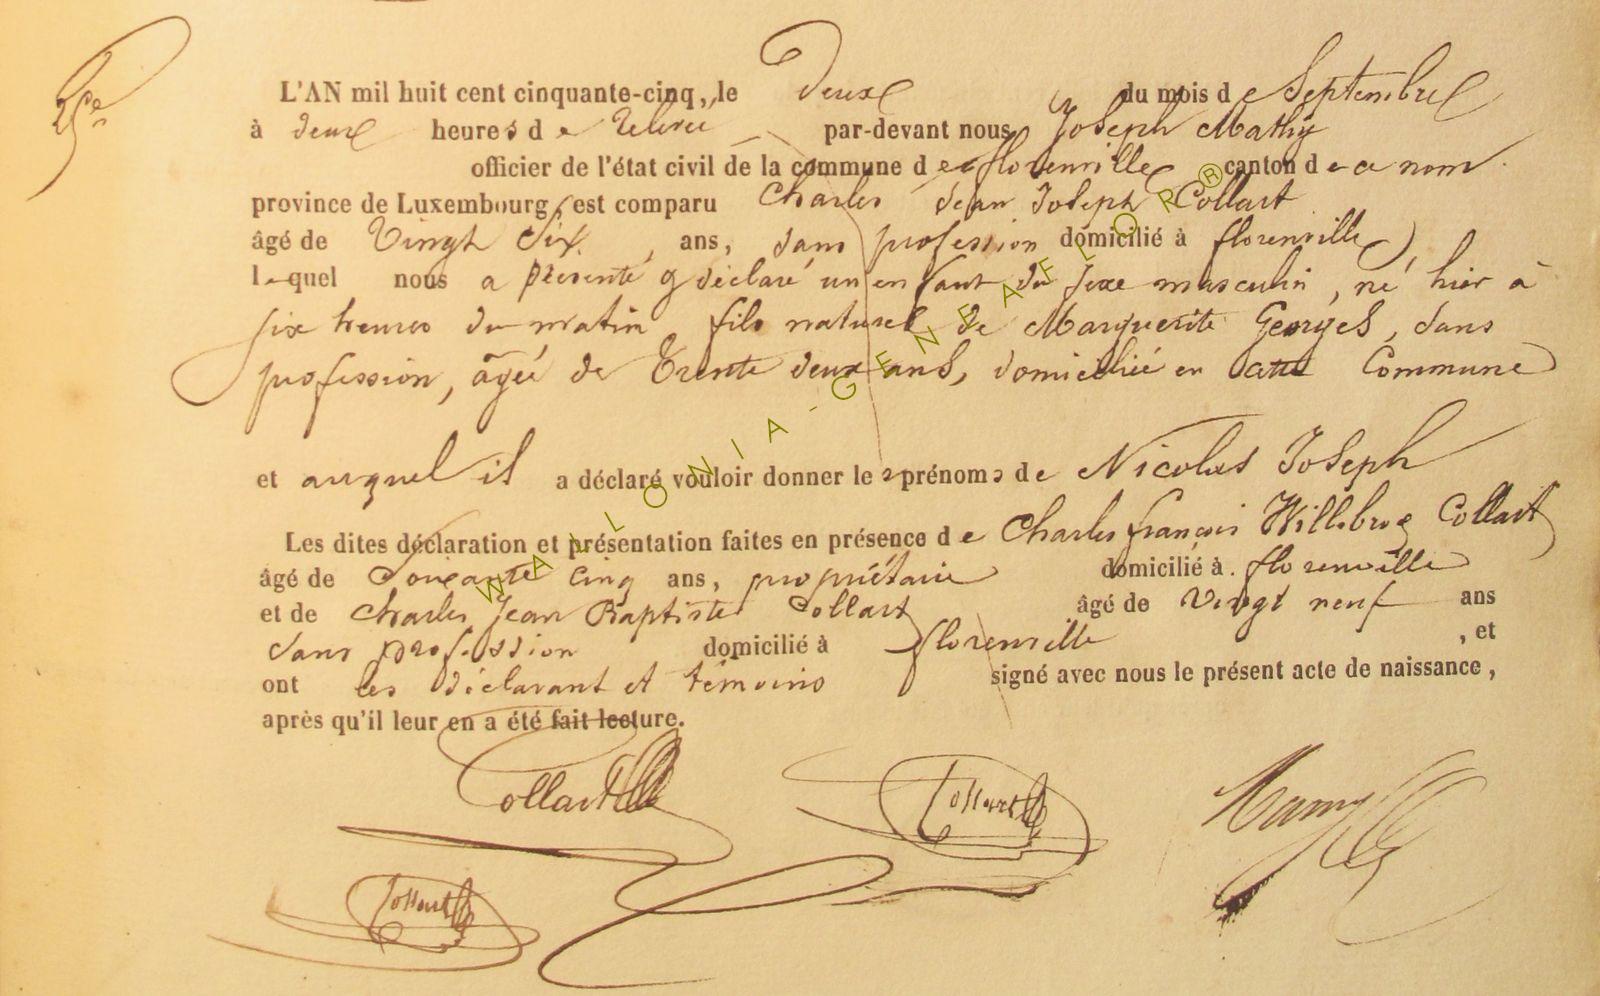 25e
L'AN mil huit cent cinquante-cinq, le deux du mois de Septembre
à deux heures de relevée par-devant nous Joseph Mathy
officier de l'état civil de la commune de florenville canton de ce nom
province de Luxembourg, est comparu Charles Jean Joseph Collart
âgé de Vingt Six ans, sans profession domicilié à florenville,
lequel nous a présenté & déclaré un enfant du sexe masculin, né hier à
six heures du matin fils naturel de Marguerite Georges, sans
profession, âgée de Trente deux ans, domiciliée en cette Commune
et auquel il a déclaré vouloir donner les prénoms de Nicolas Joseph
Les dites déclaration et présentation faites en présence de Charles françois Willebrog Collart
âgé de Soixante cinq ans, propriétaire domicilié à florenville
et de Charles Jean Baptiste Collart âgé de vingt neuf ans
sans profession domicilié à florenville , et
ont les déclarant et témoins signé avec nous le présent acte de naissance,
après qu'il leur en a été fait lecture.
Collart
Collart
Collart
WALLONIA-GENEAFLOR®